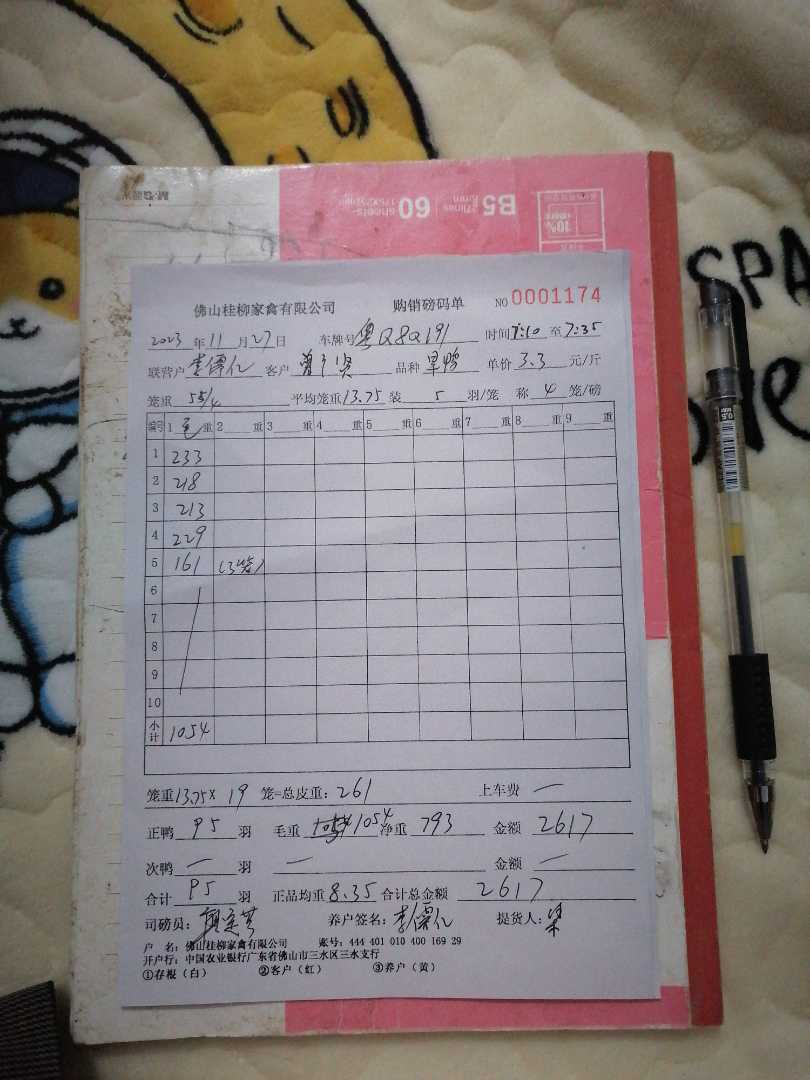 M&G
B5
7lines
8mm
60
sheets
10%
SPA
佛山桂柳家禽有限公司 购销磅码单 NO 0001174
2023 年 11 月 27 日 车牌号 粤Q8Q191 时间 7:10 至 7:35
联营户 李儒亿 客户 曾广贤 品种 旱鸭 单价 3.3 元/斤
笼重 55/4 平均笼重 13.75 装 5 羽/笼 称 4 笼/磅
编号 1 毛 重 2 重 3 重 4 重 5 重 6 重 7 重 8 重 9 重
1 233
2 218
3 213
4 229
5 161 (3笼)
6
7
8
9
10
小计 1054
笼重 13.75 × 19 笼=总皮重: 261 上车费 一
正鸭 95 羽 毛重 1054 净重 793 金额 2617
次鸭 一 羽 一 金额 一
合计 95 羽 正品均重 8.35 合计总金额 2617
司磅员: 养户签名: 李儒亿 提货人: 梁
户 名: 佛山桂柳家禽有限公司 账号: 444 401 010 400 169 29
开户行: 中国农业银行广东省佛山市三水区三水支行
①存根（白） ②客户（红） ③养户（黄）